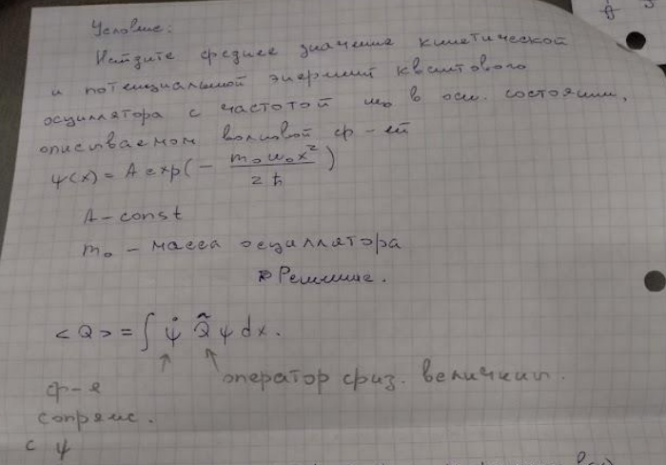 Условие:
Найдите среднее значение кинетической
и потенциальной энергий квантового
осциллятора с частотой ω₀ в осн. состоянии,
описываемом волновой ф-ей
ψ(x) = A exp(− m₀ω₀x² / 2ħ)
A – const
m₀ – масса осциллятора
Решение.
<Q> = ∫ ψ* Q̂ ψ dx.
ф-я
оператор физ. величины.
сопряж.
с ψ